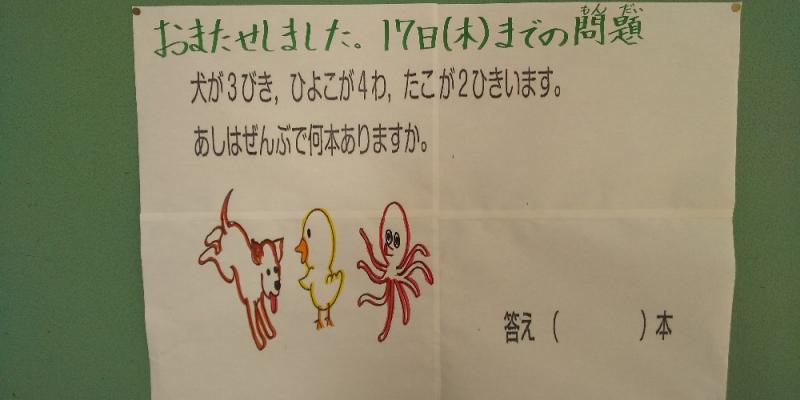 おまたせしました。17日(木)までの問題
もんだい
犬が3びき,ひよこが4わ,たこが2ひきいます。
あしはぜんぶで何本ありますか。
答え(　　　)本